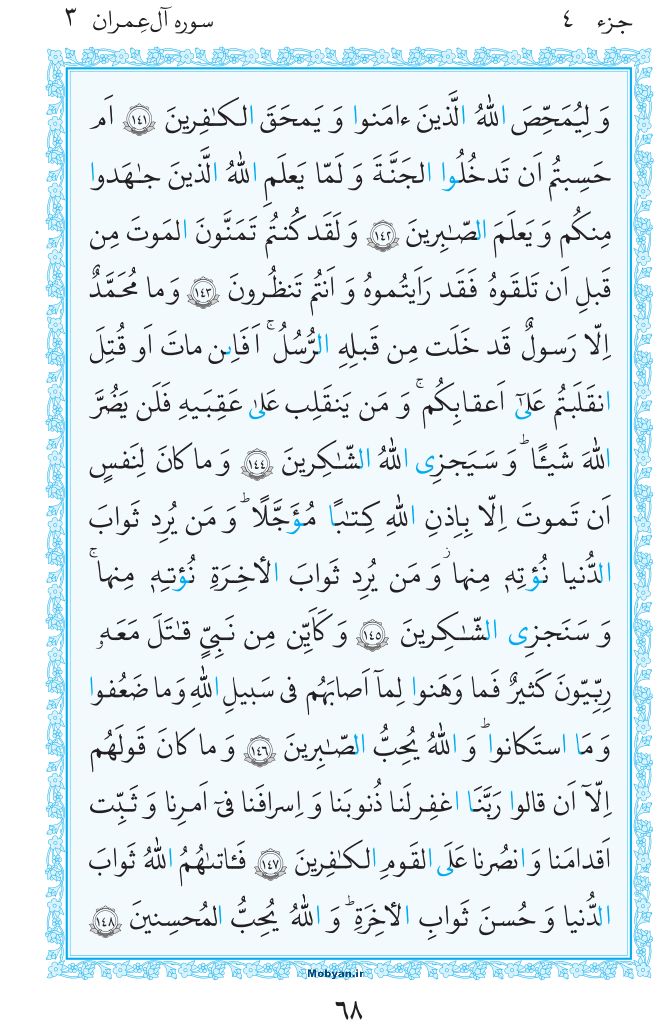 جزء ٤ سوره آل‌عِمران ٣
وَ لِيُمَحِّصَ اللهُ الَّذينَ ءامَنوا وَ يَمحَقَ الكـٰفِرينَ ﴿١٤١﴾ اَم
حَسِبتُم اَن تَدخُلُوا الجَنَّةَ وَ لَمّا يَعلَمِ اللهُ الَّذينَ جـٰهَدوا
مِنكُم وَ يَعلَمَ الصّـٰبِرينَ ﴿١٤٢﴾ وَ لَقَد كُنتُم تَمَنَّونَ المَوتَ مِن
قَبلِ اَن تَلقَوهُ فَقَد رَاَيتُموهُ وَ اَنتُم تَنظُرونَ ﴿١٤٣﴾ وَ ما مُحَمَّدٌ
اِلّا رَسولٌ قَد خَلَت مِن قَبلِهِ الرُّسُلُ ۚ اَفَاِين ماتَ اَو قُتِلَ
انقَلَبتُم عَلىٰٓ اَعقابِكُم ۚ وَ مَن يَنقَلِب عَلىٰ عَقِبَيهِ فَلَن يَضُرَّ
اللهَ شَيـًٔا ۗ وَ سَيَجزِي اللهُ الشّـٰكِرينَ ﴿١٤٤﴾ وَ ما كانَ لِنَفسٍ
اَن تَموتَ اِلّا بِاِذنِ اللهِ كِتـٰبًا مُؤَجَّلًا ۗ وَ مَن يُرِد ثَوابَ
الدُّنيا نُؤتِهٖ مِنها ۚ وَ مَن يُرِد ثَوابَ الأخِرَةِ نُؤتِهٖ مِنها ۚ
وَ سَنَجزِي الشّـٰكِرينَ ﴿١٤٥﴾ وَ كَاَيِّن مِن نَبِيٍّ قـٰتَلَ مَعَهٗ
رِبِّيّونَ كَثيرٌ فَما وَهَنوا لِمآ اَصابَهُم فى سَبيلِ اللهِ وَ ما ضَعُفوا
وَ مَا استَكانوا ۗ وَ اللهُ يُحِبُّ الصّـٰبِرينَ ﴿١٤٦﴾ وَ ما كانَ قَولَهُم
اِلّآ اَن قالوا رَبَّنَا اغفِرلَنا ذُنوبَنا وَ اِسرافَنا فىٓ اَمرِنا وَ ثَبِّت
اَقدامَنا وَ انصُرنا عَلَى القَومِ الكـٰفِرينَ ﴿١٤٧﴾ فَـٔاتىٰهُمُ اللهُ ثَوابَ
الدُّنيا وَ حُسنَ ثَوابِ الأخِرَةِ ۗ وَ اللهُ يُحِبُّ المُحسِنينَ ﴿١٤٨﴾
Mobyan.ir
٦٨